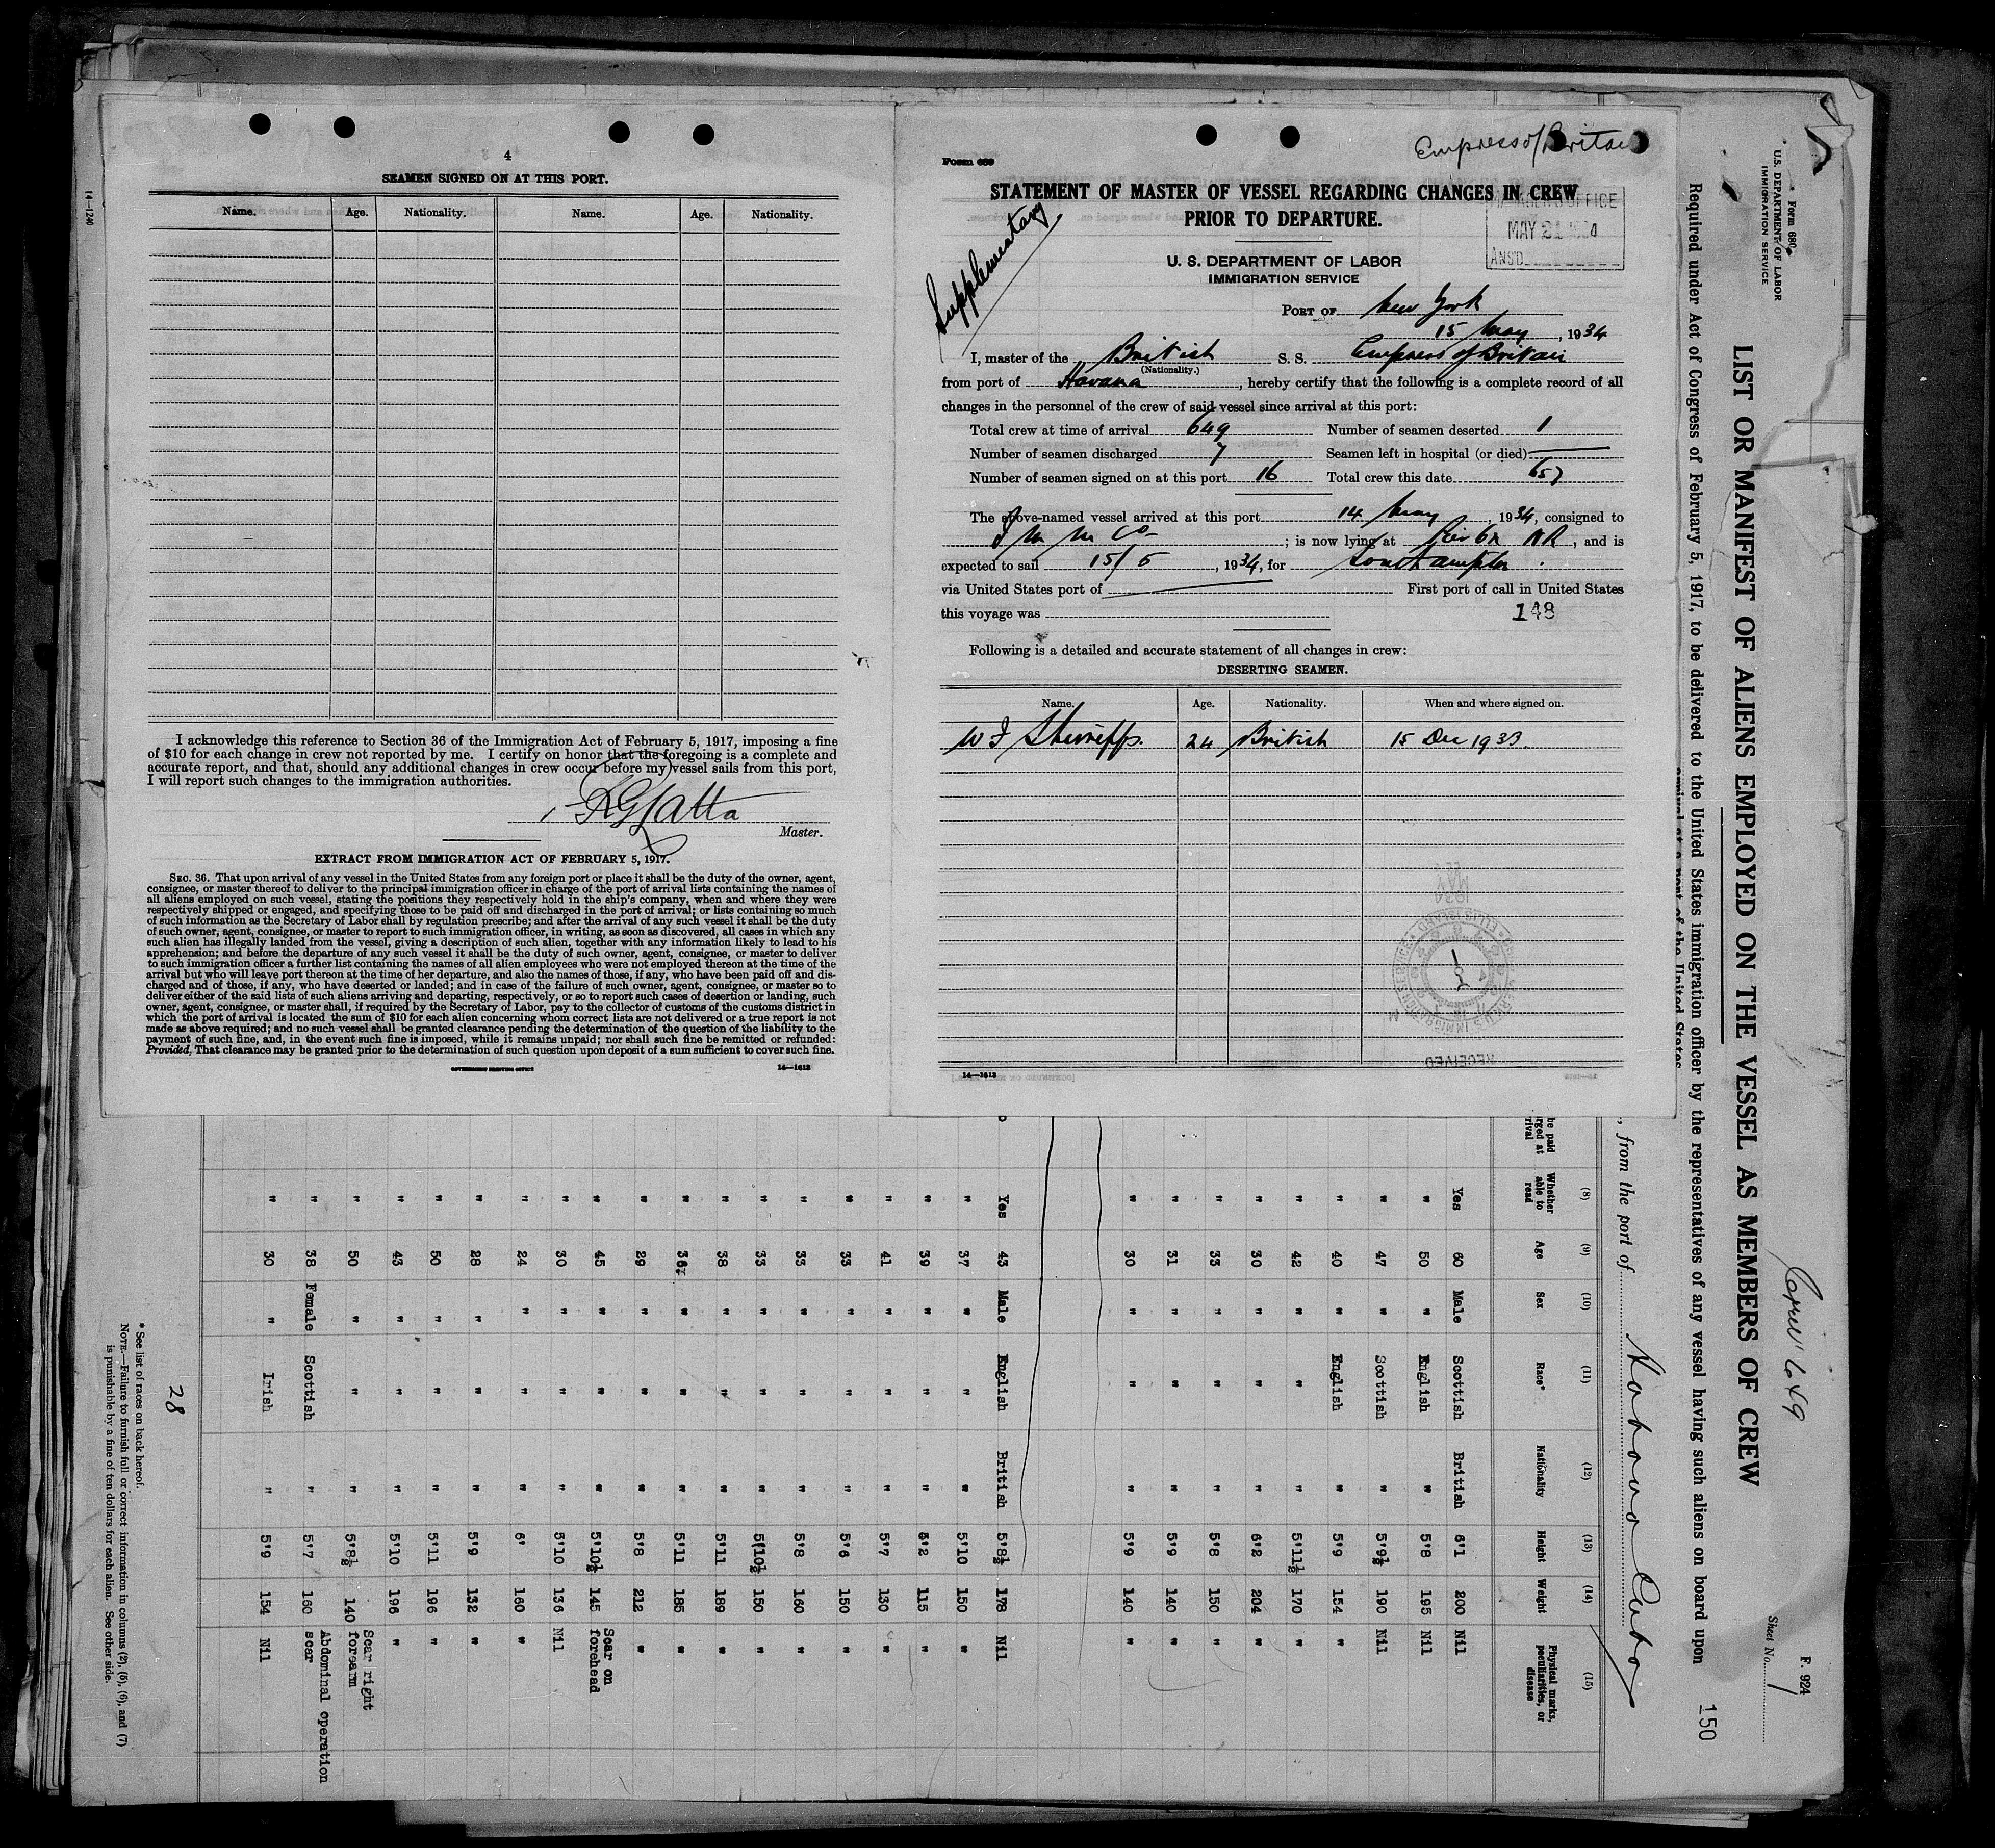 14—1240
4
SEAMEN SIGNED ON AT THIS PORT.
Name. Age. Nationality. Name. Age. Nationality.
I acknowledge this reference to Section 36 of the Immigration Act of February 5, 1917, imposing a fine
of $10 for each change in crew not reported by me. I certify on honor that the foregoing is a complete and
accurate report, and that, should any additional changes in crew occur before my vessel sails from this port,
I will report such changes to the immigration authorities.
RGLatta
Master.
EXTRACT FROM IMMIGRATION ACT OF FEBRUARY 5, 1917.
SEC. 36. That upon arrival of any vessel in the United States from any foreign port or place it shall be the duty of the owner, agent,
consignee, or master thereof to deliver to the principal immigration officer in charge of the port of arrival lists containing the names of
all aliens employed on such vessel, stating the positions they respectively hold in the ship's company, when and where they were
respectively shipped or engaged, and specifying those to be paid off and discharged in the port of arrival; or lists containing so much
of such information as the Secretary of Labor shall by regulation prescribe; and after the arrival of any such vessel it shall be the duty
of such owner, agent, consignee, or master to report to such immigration officer, in writing, as soon as discovered, all cases in which any
such alien has illegally landed from the vessel, giving a description of such alien, together with any information likely to lead to his
apprehension; and before the departure of any such vessel it shall be the duty of such owner, agent, consignee, or master to deliver
to such immigration officer a further list containing the names of all alien employees who were not employed thereon at the time of the
arrival but who will leave port thereon at the time of her departure, and also the names of those, if any, who have been paid off and dis-
charged and of those, if any, who have deserted or landed; and in case of the failure of such owner, agent, consignee, or master so to
deliver either of the said lists of such aliens arriving and departing, respectively, or so to report such cases of desertion or landing, such
owner, agent, consignee, or master shall, if required by the Secretary of Labor, pay to the collector of customs of the customs district in
which the port of arrival is located the sum of $10 for each alien concerning whom correct lists are not delivered or a true report is not
made as above required; and no such vessel shall be granted clearance pending the determination of the question of the liability to the
payment of such fine, and, in the event such fine is imposed, while it remains unpaid; nor shall such fine be remitted or refunded:
Provided, That clearance may be granted prior to the determination of such question upon deposit of a sum sufficient to cover such fine.
GOVERNMENT PRINTING OFFICE 14—1613
Empress of Britain
Form 689
STATEMENT OF MASTER OF VESSEL REGARDING CHANGES IN CREW
PRIOR TO DEPARTURE.
Supplementary
OFFICE
MAY 21 1934
ANS'D
U. S. DEPARTMENT OF LABOR
IMMIGRATION SERVICE
PORT OF New York
15 May, 1934
I, master of the British S. S. Empress of Britain
(Nationality.)
from port of Havana, hereby certify that the following is a complete record of all
changes in the personnel of the crew of said vessel since arrival at this port:
Total crew at time of arrival 649 Number of seamen deserted 1
Number of seamen discharged 7 Seamen left in hospital (or died) —
Number of seamen signed on at this port 16 Total crew this date 657
The above-named vessel arrived at this port 14 May, 1934, consigned to
I M M Co; is now lying at Pier 61 NR, and is
expected to sail 15/5, 1934, for Southampton.
via United States port of — First port of call in United States
this voyage was
148
Following is a detailed and accurate statement of all changes in crew:
DESERTING SEAMEN.
Name. Age. Nationality. When and where signed on.
24 British 15 Dec 1933.
RECEIVED
14—1613
Form 680
U.S. DEPARTMENT OF LABOR
IMMIGRATION SERVICE
F. 924
Sheet No. 1
649
LIST OR MANIFEST OF ALIENS EMPLOYED ON THE VESSEL AS MEMBERS OF CREW
Required under Act of Congress of February 5, 1917, to be delivered to the United States immigration officer by the representatives of any vessel having such aliens on board upon
arrival at a port of the United States
150
, from the port of Habana Cuba
be paid
rged at
rival
(8) (9) (10) (11) (12) (13) (14) (15)
Whether able to read Age Sex Race* Nationality Height Weight Physical marks, peculiarities, or disease
Yes 60 Male Scottish British 6'1 200 Nil
" 50 " English " 5'8 195 Nil
" 47 " Scottish " 5'9½ 190 Nil
" 40 " English " 5'9 154 "
" 42 " " " 5'11½ 170 "
" 30 " " " 6'2 204 "
" 33 " " " 5'8 150 "
" 31 " " " 5'9 140 "
" 30 " " " 5'9 140 "
Yes 43 Male English British 5'8½ 178 Nil
" 37 " " " 5'10 150 "
" 39 " " " 5'2 115 "
" 41 " " " 5'7 130 "
" 33 " " " 5'6 150 "
" 33 " " " 5'8 160 "
" 33 " " " 5'10½ 150 "
" 38 " " " 5'11 189 "
" 36 " " " 5'11 185 "
" 29 " " " 5'8 212 "
" 45 " " " 5'10½ 145 Scar on forehead
" 30 " " " 5'10 136 Nil
" 24 " " " 6' 160 "
" 28 " " " 5'9 132 "
" 50 " " " 5'11 196 "
" 43 " " " 5'10 196 "
" 50 " " " 5'8½ 140 Scar right forearm
" 38 Female Scottish " 5'7 160 Abdominal operation scar
" 30 " Irish " 5'9 154 Nil
28
* See list of races on back hereof.
NOTE.—Failure to furnish full or correct information in columns (2), (5), (6), and (7)
is punishable by a fine of ten dollars for each alien. See other side.